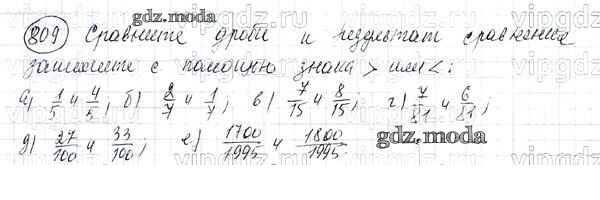 gdz.moda
809 Сравните дроби и результат сравнения
запишите с помощью знака > или <:
а) 1/5 и 4/5; б) 2/7 и 1/7; в) 7/15 и 8/15; г) 7/81 и 6/81;
д) 27/100 и 33/100; е) 1700/1995 и 1800/1995.
gdz.moda